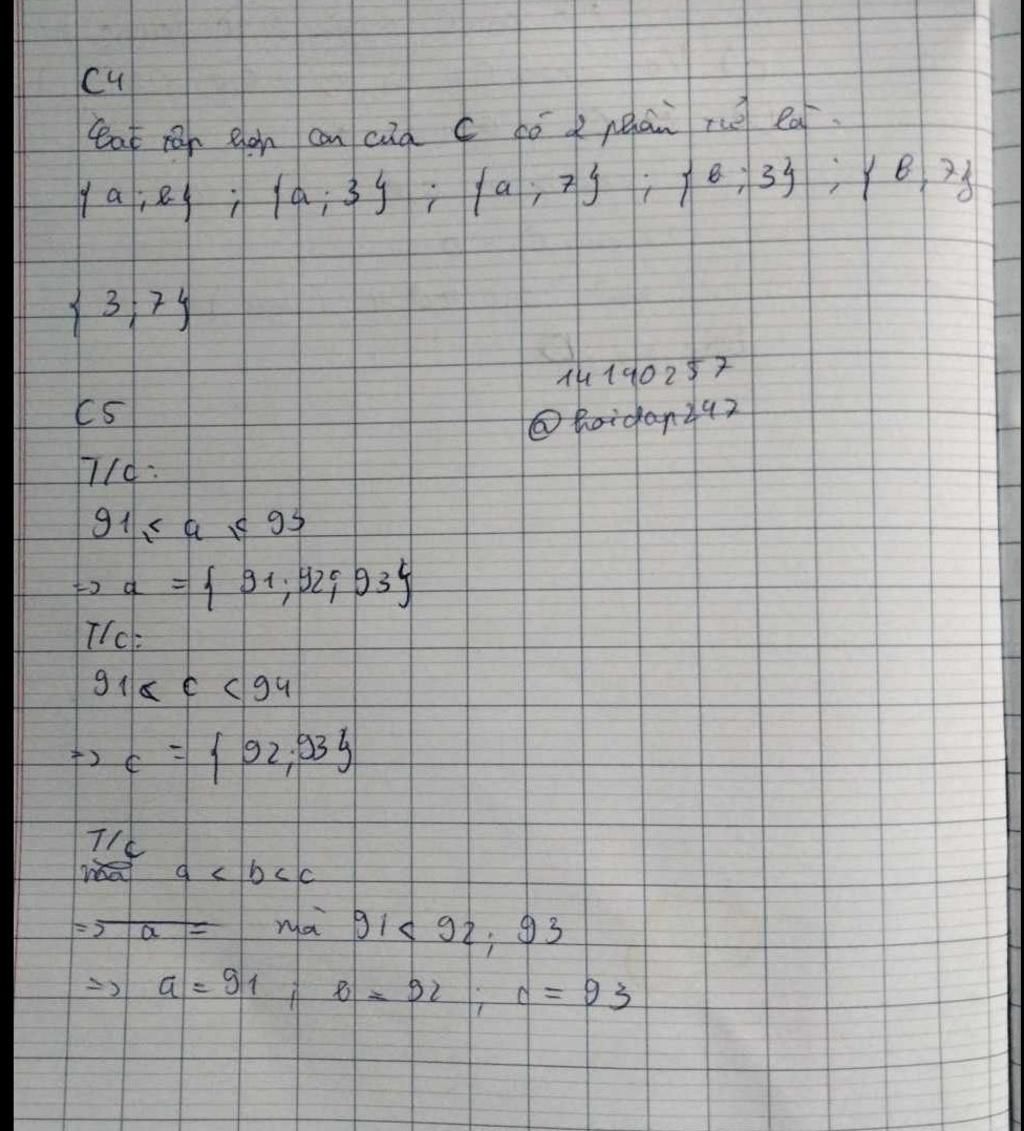 C4
Các tập hợp con của C có 2 phần tử là:
{a;b} ; {a;3} ; {a;7} ; {b;3} ; {b;7}
{3;7}
14190257
@hoidap247
C5
T/c:
91 ≤ a ≤ 93
=> a = {91;92;93}
T/c:
91 < c < 94
=> c = {92;93}
T/c
mà a < b < c
=> a = mà 91 < 92; 93
=> a = 91 ; b = 92 ; c = 93